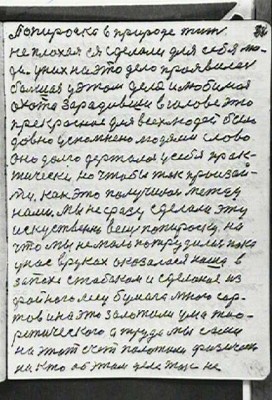 Попироска в природе тип
не плохая ея сделали для себя лю-
ди. у них на это дело проявилась
большая у этом деле и любимая
охота зарадивши в голове это
прекрасное для всех людей было
давно успомнено людями слово
оно долго держалось у себя прак-
тически но чтобы так произой-
ти, как это получилось между
нами. Мы не сразу сделали эту
искуственну вещ попироску, на
что мы не мало потрудились пока
у нас в руках оказалася наша в
запасе с табаком и сделаная из
бумага много сор-
тов и на это заложили ума тио-
ретического а труда мы сами
на этот счет положили физическ
никто об этом деле так не